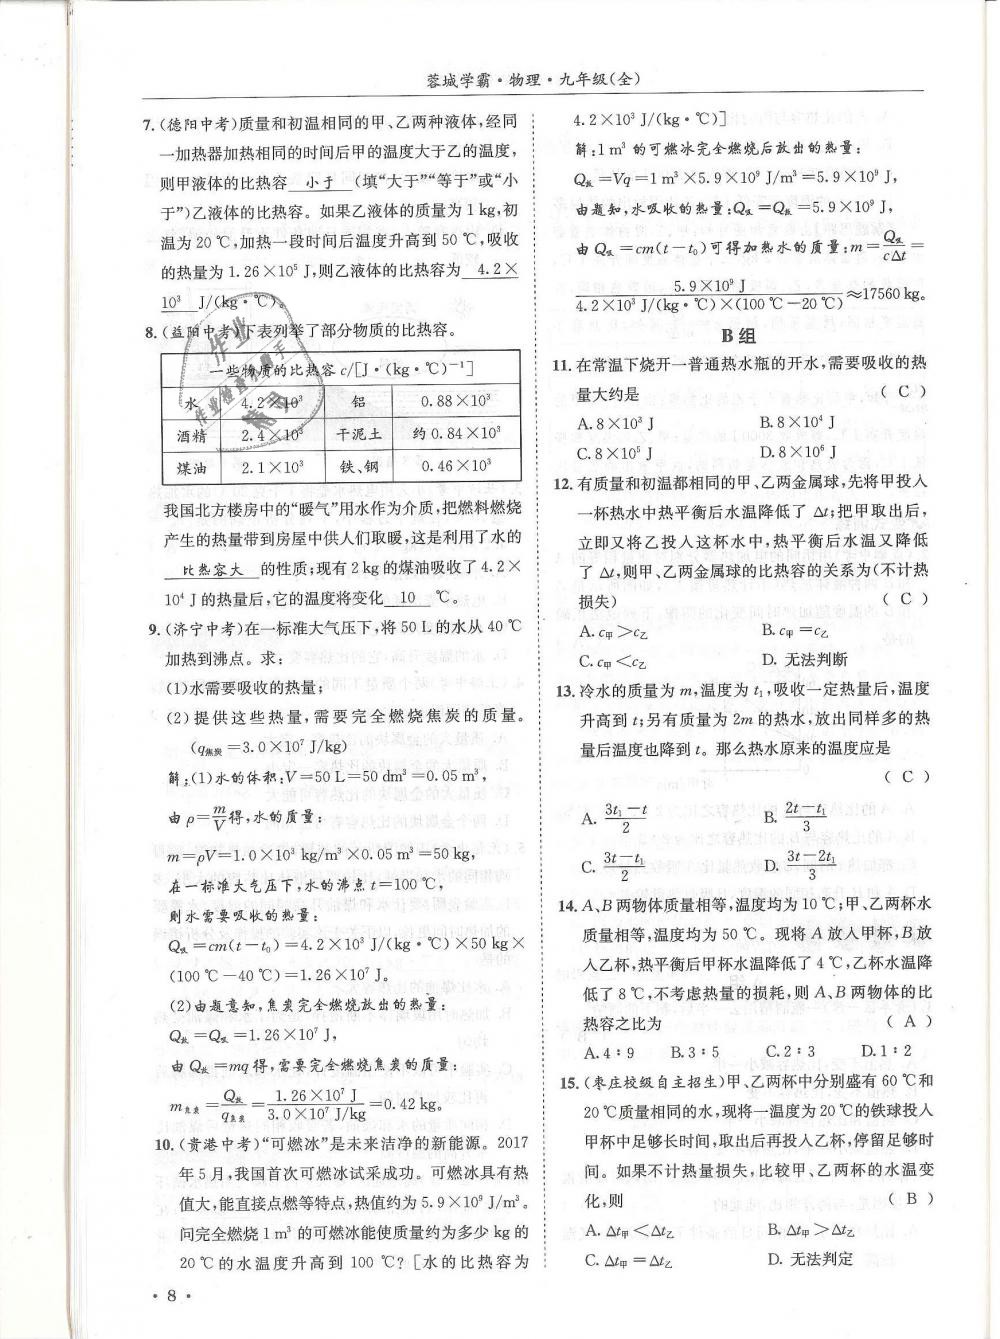 蓉城学霸·物理·九年级(全)
7.(德阳中考)质量和初温相同的甲、乙两种液体,经同
一加热器加热相同的时间后甲的温度大于乙的温度,
则甲液体的比热容 小于 (填“大于”“等于”或“小
于”)乙液体的比热容。如果乙液体的质量为1 kg,初
温为20 ℃,加热一段时间后温度升高到50 ℃,吸收
的热量为1.26×10⁵ J,则乙液体的比热容为 4.2×
10³ J/(kg·℃)。
8.(益阳中考)下表列举了部分物质的比热容。
一些物质的比热容 c/[J·(kg·℃)⁻¹]
水 4.2×10³ 铝 0.88×10³
酒精 2.4×10³ 干泥土 约0.84×10³
煤油 2.1×10³ 铁、钢 0.46×10³
我国北方楼房中的“暖气”用水作为介质,把燃料燃烧
产生的热量带到房屋中供人们取暖,这是利用了水的
比热容大 的性质;现有2 kg的煤油吸收了4.2×
10⁴ J的热量后,它的温度将变化 10 ℃。
9.(济宁中考)在一标准大气压下,将50 L的水从40 ℃
加热到沸点。求:
(1)水需要吸收的热量;
(2)提供这些热量,需要完全燃烧焦炭的质量。
(q焦炭=3.0×10⁷ J/kg)
解:(1)水的体积:V=50 L=50 dm³=0.05 m³,
由ρ=m/V得,水的质量:
m=ρV=1.0×10³ kg/m³×0.05 m³=50 kg,
在一标准大气压下,水的沸点t=100 ℃,
则水需要吸收的热量:
Q吸=cm(t-t₀)=4.2×10³ J/(kg·℃)×50 kg×
(100 ℃-40 ℃)=1.26×10⁷ J。
(2)由题意知,焦炭完全燃烧放出的热量:
Q放=Q吸=1.26×10⁷ J,
由Q放=mq得,需要完全燃烧焦炭的质量:
m焦炭=Q放/q焦炭=1.26×10⁷ J/3.0×10⁷ J/kg=0.42 kg。
10.(贵港中考)“可燃冰”是未来洁净的新能源。2017
年5月,我国首次可燃冰试采成功。可燃冰具有热
值大,能直接点燃等特点,热值约为5.9×10⁹ J/m³。
问完全燃烧1 m³的可燃冰能使质量约为多少kg的
20 ℃的水温度升高到100 ℃?[水的比热容为
4.2×10³ J/(kg·℃)]
解:1 m³的可燃冰完全燃烧后放出的热量:
Q放=Vq=1 m³×5.9×10⁹ J/m³=5.9×10⁹ J,
由题知,水吸收的热量:Q吸=Q放=5.9×10⁹ J,
由Q吸=cm(t-t₀)可得加热水的质量:m=Q吸/cΔt=
5.9×10⁹ J/4.2×10³ J/(kg·℃)×(100 ℃-20 ℃)≈17560 kg。
B组
11.在常温下烧开一普通热水瓶的开水,需要吸收的热
量大约是 ( C )
A.8×10³ J B.8×10⁴ J
C.8×10⁵ J D.8×10⁶ J
12.有质量和初温都相同的甲、乙两金属球,先将甲投入
一杯热水中热平衡后水温降低了Δt;把甲取出后,
立即又将乙投入这杯水中,热平衡后水温又降低
了Δt,则甲、乙两金属球的比热容的关系为(不计热
损失) ( C )
A.c甲>c乙 B.c甲=c乙
C.c甲<c乙 D.无法判断
13.冷水的质量为m,温度为t₁,吸收一定热量后,温度
升高到t;另有质量为2m的热水,放出同样多的热
量后温度也降到t。那么热水原来的温度应是
( C )
A.3t₁-t/2 B.2t-t₁/3
C.3t-t₁/2 D.3t-2t₁/3
14.A、B两物体质量相等,温度均为10 ℃;甲、乙两杯水
质量相等,温度均为50 ℃。现将A放入甲杯,B放
入乙杯,热平衡后甲杯水温降低了4 ℃,乙杯水温降
低了8 ℃,不考虑热量的损耗,则A、B两物体的比
热容之比为 ( A )
A.4∶9 B.3∶5 C.2∶3 D.1∶2
15.(枣庄校级自主招生)甲、乙两杯中分别盛有60 ℃和
20 ℃质量相同的水,现将一温度为20 ℃的铁球投入
甲杯中足够长时间,取出后再投入乙杯,停留足够时
间。如果不计热量损失,比较甲、乙两杯的水温变
化,则 ( B )
A.Δt甲<Δt乙 B.Δt甲>Δt乙
C.Δt甲=Δt乙 D.无法判定
·8·